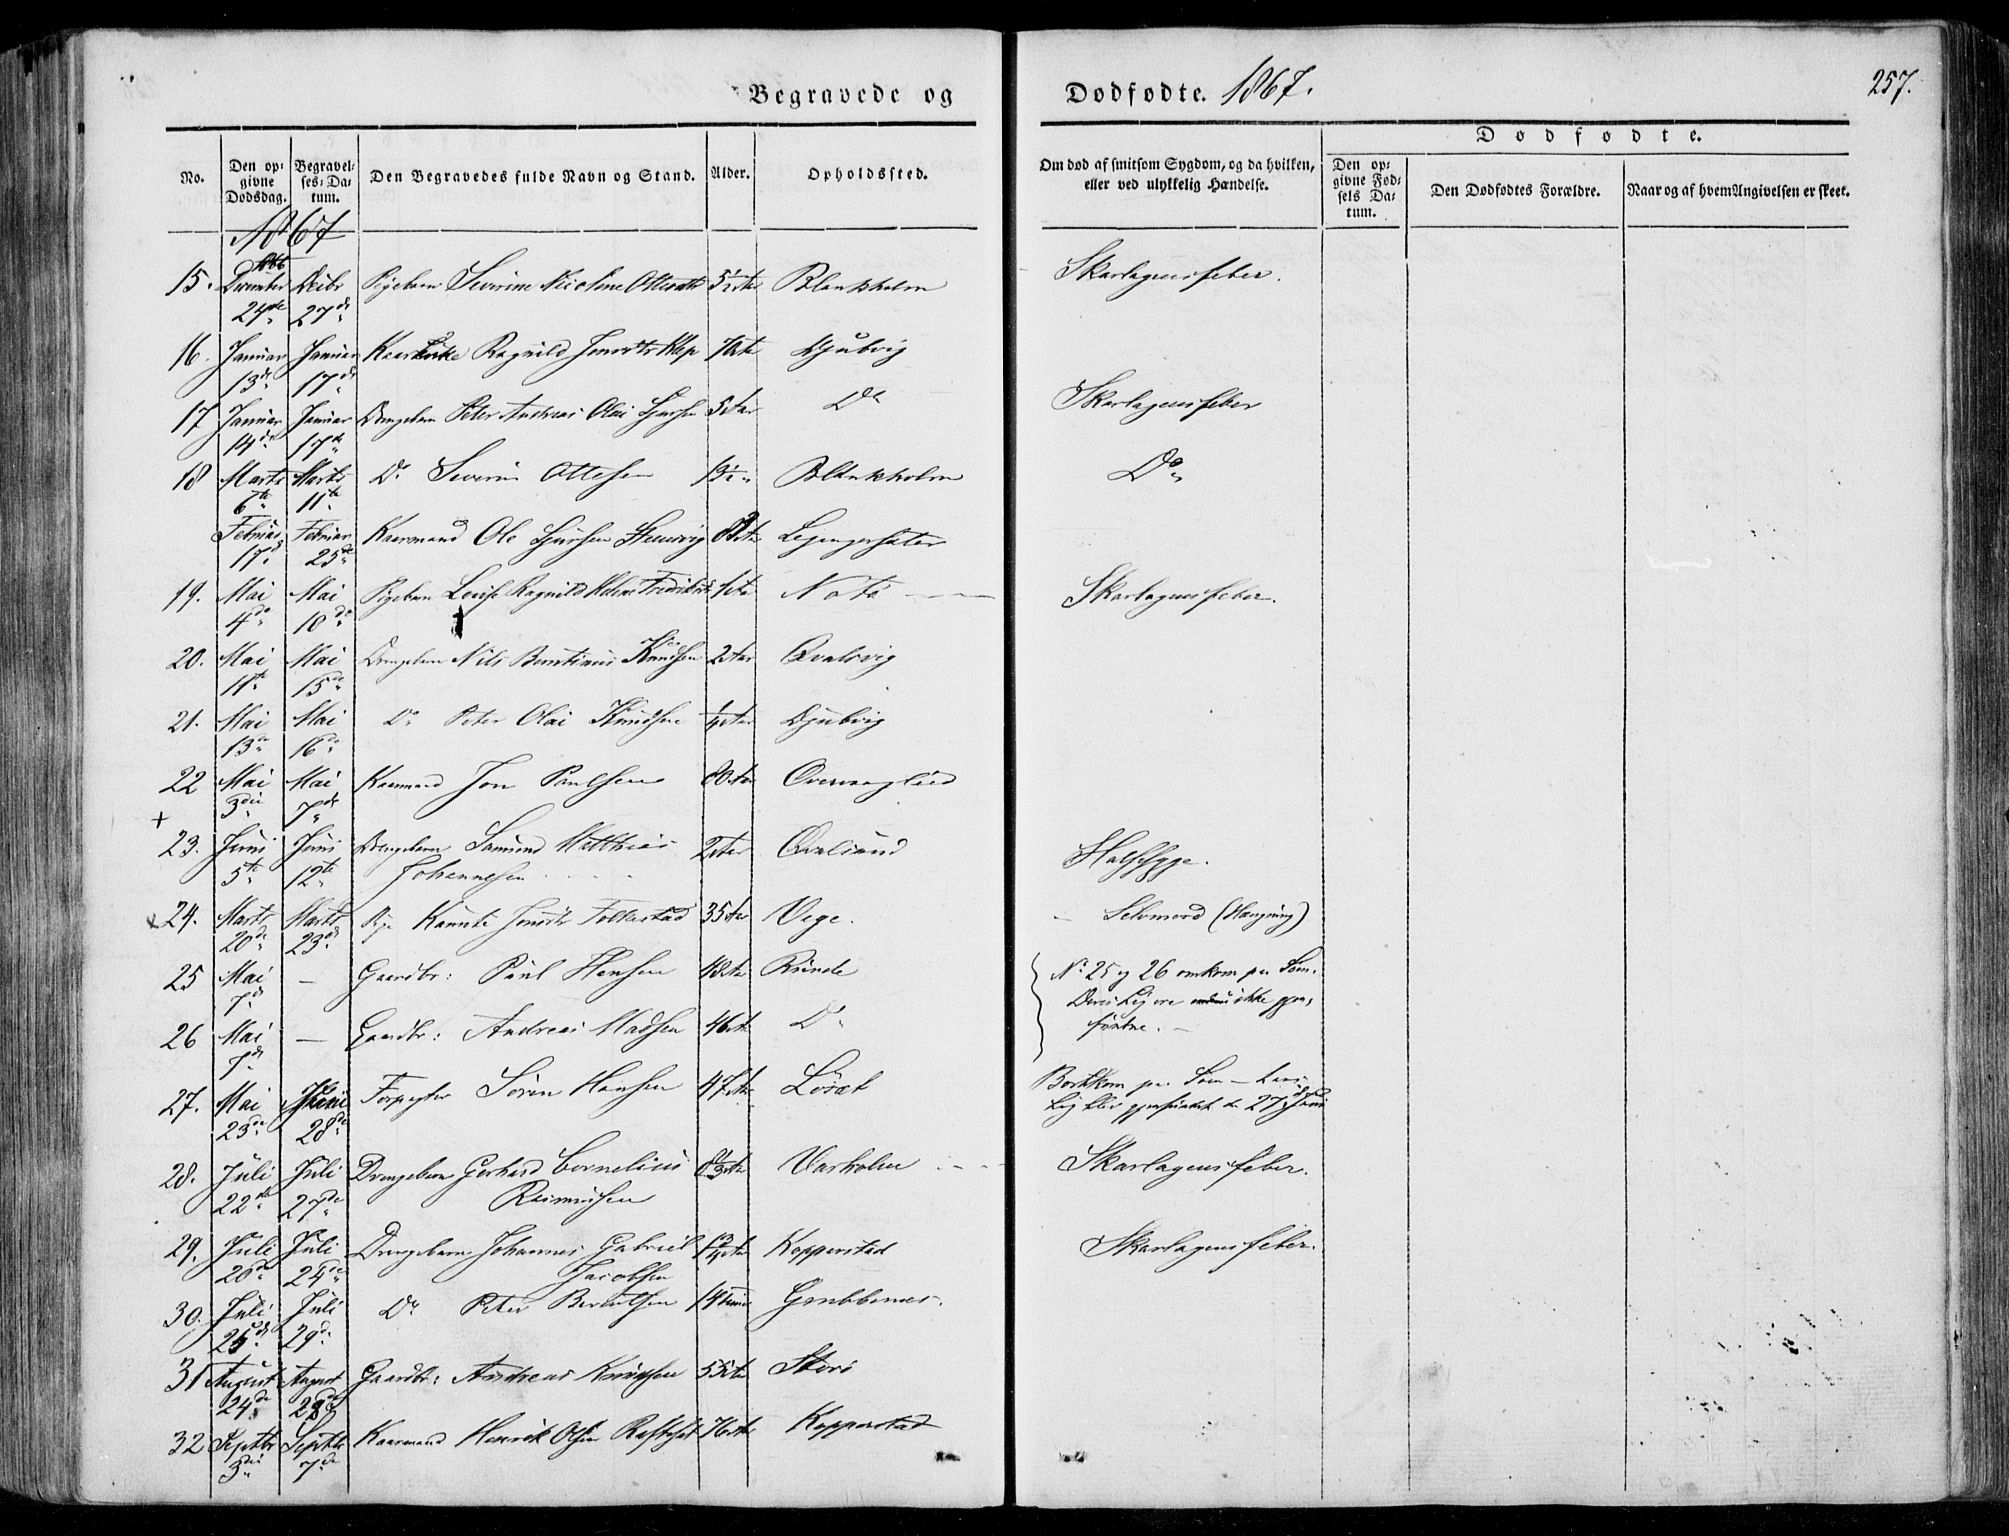 Begravede og Dødfødte. 1867.
257.
No.
Den opgivne Dødsdag.
Begravelses-Datum.
Den Begravedes fulde Navn og Stand.
Alder.
Opholdssted.
Om død af smitsom Sygdom, og da hvilken, eller ved ulykkelig Hændelse.
Dødfødte.
Den opgivne Fødsels Datum.
Den Dødfødtes Forældre.
Naar og af hvem Angivelsen er skeet.
1867
15. December 24de Decbr 27de Pigebarn Severine Nicoline Ottesdtr 5½ Aar Blankholm Skarlagensfeber.
16. Januar 13de Januar 17de Ragnild Jonsdtr Klep 70 Aar Djubvig
17 Januar 14de Januar 17de Drengebarn Peter Andreas Olai 5 Aar Do Skarlagensfeber
18 Marts 6te Marts 11te Do Severin Ottesen 13½ Blankholm Do
Februar 17de Februar 25de Kaarmand Ole 82 Aar
19. Mai 4de Mai 10de Pigebarn Lovise Ragnild Helene 1 Aar Skarlagensfeber.
20. Mai 11te Mai 15de Drengebarn Nils Knudsen 2 Aar Qvalsvig
21. Mai 13de Mai 16de Do Peter Olai Knudsen ¼ Aar Djubvig
22 Mai 3die Mai 7de Kaarmand Jon Paulsen 80 Aar
+
23. Juni 5te Juni 12te Drengebarn Samund Matthias Johannesen 2 Aar Qvalsund Halssyge.
x 24. Marts 20de Marts 23de Pige Jonsdtr Folkestad 35 Aar Vege. Selvmord (Hængning)
25 Mai 7de — Gaardbr: Paul Hansen 48 Aar Runde
No 25 og 26 omkom paa Søen.
Deres Lig ere ikke gjenfundne. —
26 Mai 7de — Gaardbr: Andreas Madsen 46 Aar Do
27. Mai 23de Juni 28de Søren Hansen 47 Aar Løset
Bortkom paa Søen — hans
Lig blev gjenfundet den 27de Juni
28. Juli 22de Juli 27de Drengebarn Gerhard Cornelius Rasmussen 8⅓ Aar Varholm Skarlagensfeber.
29. Juli 20de Juli 24de Drengebarn Johannes Gabriel Jacobsen Kopperstad Skarlagensfeber.
30. Juli 25de Juli 29de Do Peter Berentsen 14 Grebbenes.
31 August 24de August 28de Gaardbr: Andreas Knudsen 55 Aar Storø
32 Septbr 3die Septbr 7de Kaarmand Henrik Olsen 76 Aar Kopperstad